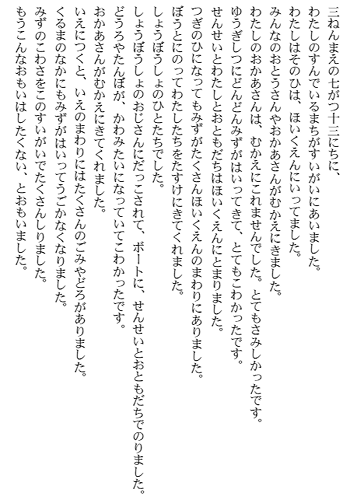 三ねんまえの七がつ十三にちに、
わたしのすんでいるまちがすいがいにあいました。
わたしはそのひは、ほいくえんにいってました。
みんなのおとうさんやおかあさんがむかえにきました。
わたしのおかあさんは、むかえにこれませんでした。とてもさみしかったです。
ゆうぎしつにどんどんみずがはいってきて、とてもこわかったです。
せんせいとわたしとおともだちはほいくえんにとまりました。
つぎのひになってもみずがたくさんほいくえんのまわりにありました。
ぼうとにのってわたしたちをたすけにきてくれました。
しょうぼうしょのひとたちでした。
しょうぼうしょのおじさんにだっこされて、ボートに、せんせいとおともだちでのりました。
どうろやたんぼが、かわみたいになっていてこわかったです。
おかあさんがむかえにきてくれました。
いえにつくと、いえのまわりにはたくさんのごみやどろがありました。
くるまのなかにもみずがはいってうごかなくなりました。
みずのこわさをこのすいがいでたくさんしりました。
もうこんなおもいはしたくない、とおもいました。